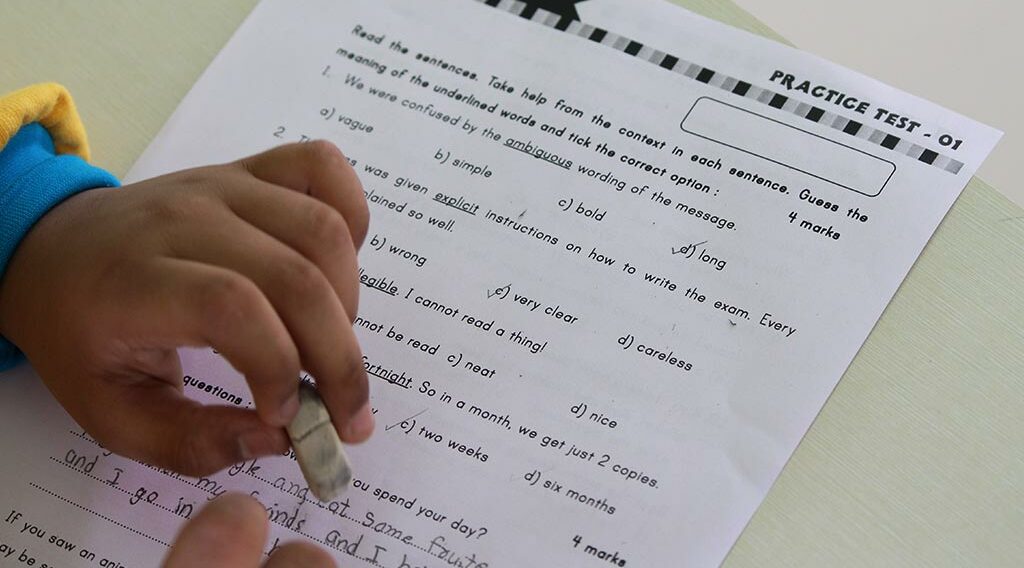 PRACTICE TEST - 01
Read the sentences. Take help from the context in each sentence. Guess the
meaning of the underlined words and tick the correct option :
4 marks
1. We were confused by the ambiguous wording of the message.
a) vague b) simple c) bold d) long
2. was given explicit instructions on how to write the exam. Every
lained so well.
b) wrong c) very clear d) careless
legible. I cannot read a thing!
nnot be read c) neat d) nice
fortnight. So in a month, we get just 2 copies.
c) two weeks d) six months
questions :
4 marks
ou spend your day?
my and eat Some fruits
and I go in inds and I
If you saw an
ay be